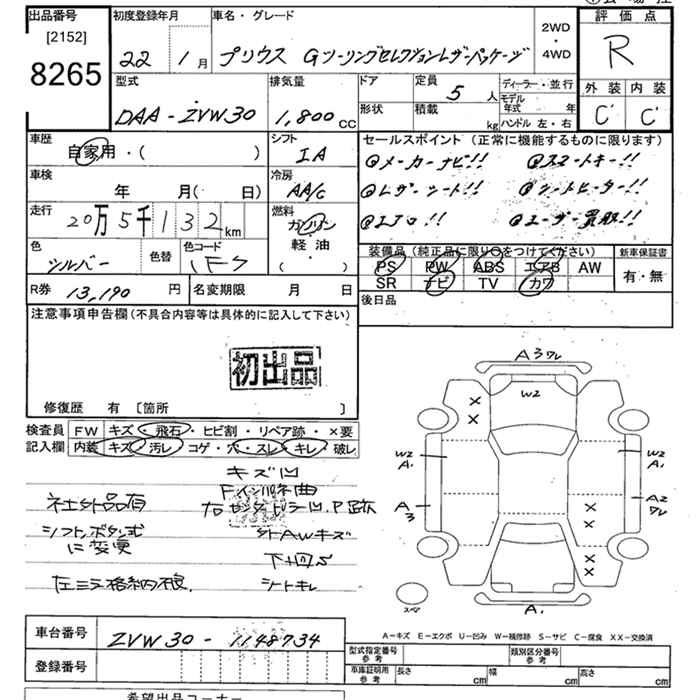 出品番号 初度登録年月 車名・グレード 評価点
[2152]
8265
22年1月 プリウス Gツーリングセレクションレザーパッケージ 2WD・4WD R
型式 排気量 ドア 定員 ディーラー・並行 外装 内装
DAA-ZVW30 1,800cc 5人 モデル年式 年 C C
形状 積載 kg ハンドル 左・右
車歴 シフト セールスポイント (正常に機能するものに限ります)
自家用・( ) IA ◎メーカーナビ!! ◎スマートキー!!
車検 冷房 ◎レザーシート!! ◎シートヒーター!!
年 月( 日) AA/C
走行 燃料 ◎LED!! ◎ユーザー買取!!
20万5千132km ガソリン
軽油・( )
色 色替 色コード 装備品 (純正品に限り○をつけてください) 新車保証書
シルバー 1F7 PS PW ABS エアB AW 有・無
SR ナビ TV カワ
R券 13,190円 名変期限 月 日 後日品
注意事項申告欄(不具合内容等は具体的に記入して下さい)
初出品
修復歴 有 [箇所 ]
検査員記入欄 FW キズ・飛石・ヒビ割・リペア跡・×要
内装 キズ・汚レ・コゲ・穴・スレ・キレ・破レ
キズ凹
社外品有
外AWキズ
シフトボタン式に変更
下廻りS
左ミラー格納不良 シートキレ
A3ワレ
W2
W2 A1
W2 A1
A3
A2ワレ
スペア
A1
A-キズ E-エクボ U-凹み W-補修跡 S-サビ C-腐食 XX-交換済
車台番号 ZVW30-1148734
型式指定番号 参考 類別区分番号 参考
登録番号 車庫証明用 参考 長さ cm 幅 cm 高さ cm
希望出品コーナー